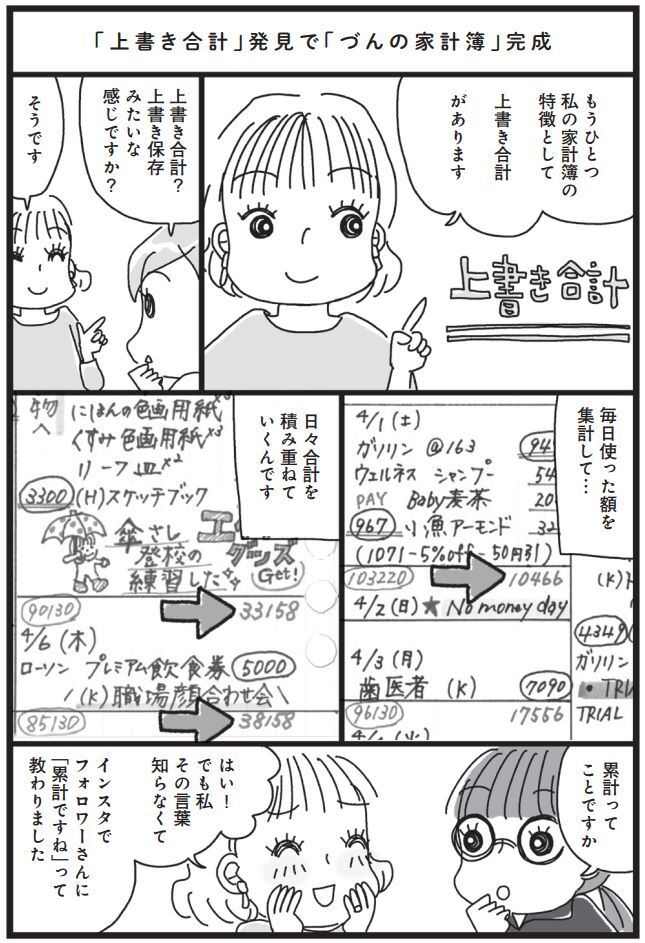 「上書き合計」発見で「づんの家計簿」完成
もうひとつ
私の家計簿の
特徴として
上書き合計
があります
上書き合計
上書き合計?
上書き保存
みたいな
感じですか?
そうです
毎日使った額を
集計して…
4/1(土)
ガソリン @163
ウェルネス シャンプー 54
PAY Baby麦茶 20
967 小魚アーモンド 32
(1071-5%off-50円引)
103220 10466
4/2(日)★No money day
4/3(月)
歯医者 (K) 7090
96130 17556
(K)
4349
ガソリン
TRIAL
日々合計を
積み重ねて
いくんです
物
へ
にほんの色画用紙×3
くすみ色画用紙×3
リーフ皿×2
3300 (H)スケッチブック
傘さし
登校の
練習した
グッズ
Get!
90130 33158
4/6(木)
ローソン プレミアム飲食券 5000
\(K)職場顔合わせ会\
85130 38158
累計って
ことですか
はい!
でも私
その言葉
知らなくて
インスタで
フォロワーさんに
「累計ですね」って
教わりました